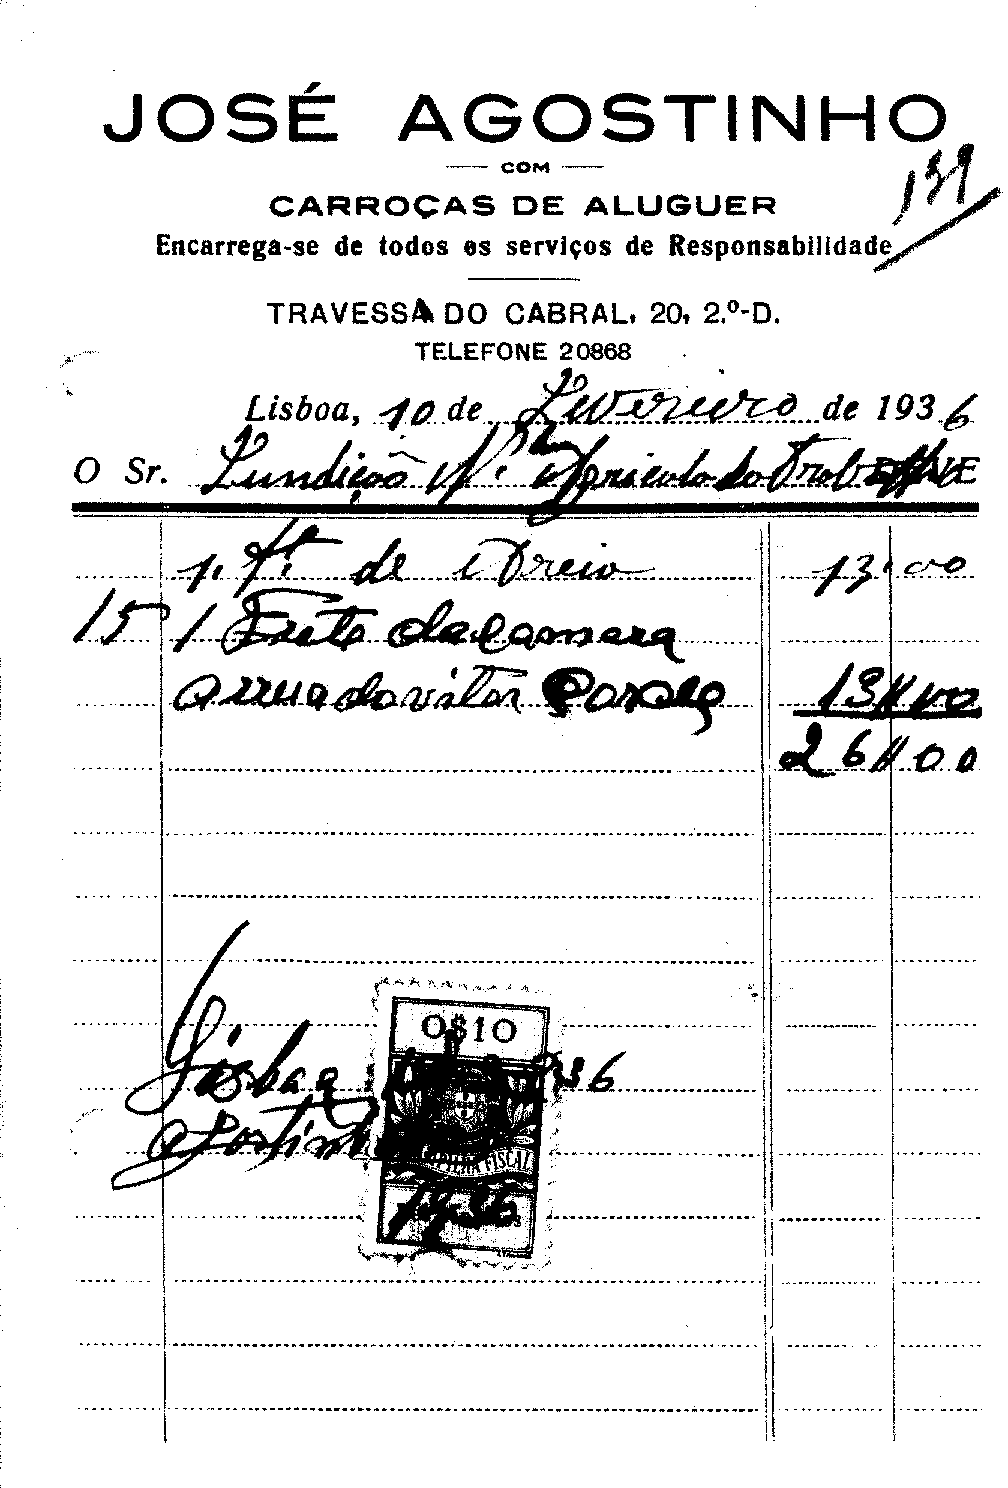 JOSÉ AGOSTINHO
139
COM
CARROÇAS DE ALUGUER
Encarrega-se de todos os serviços de Responsabilidade
TRAVESSA DO CABRAL, 20, 2.º-D.
TELEFONE 20868
Lisboa, 10 de Fevereiro de 1936
O Sr. Fundição DEVE
1. de Areia 13,00
15 1 Frete da Camara
a rua do vitor 13$00
26$00
0$10
Lisboa 936
Agostinho
FISCAL
1936